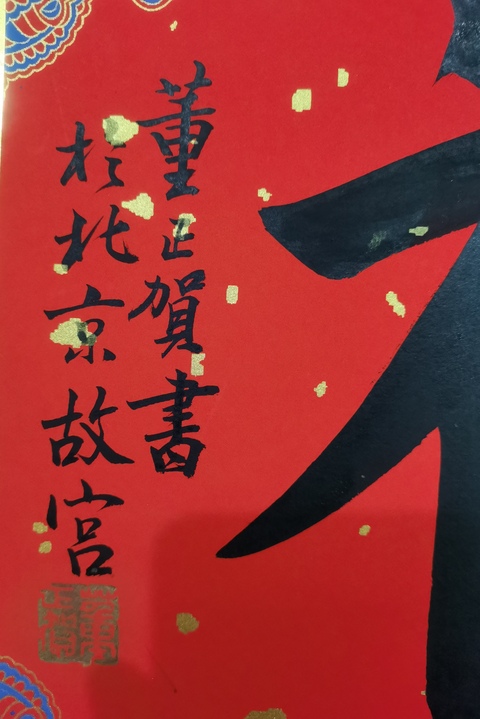 董正賀書
於北京故宮